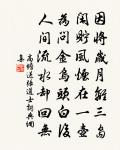 因將歲月離三島
閑貯風煙在一壺
為問金烏頭白後
人間流水卻回無
高蟾送張道士詩典網
集